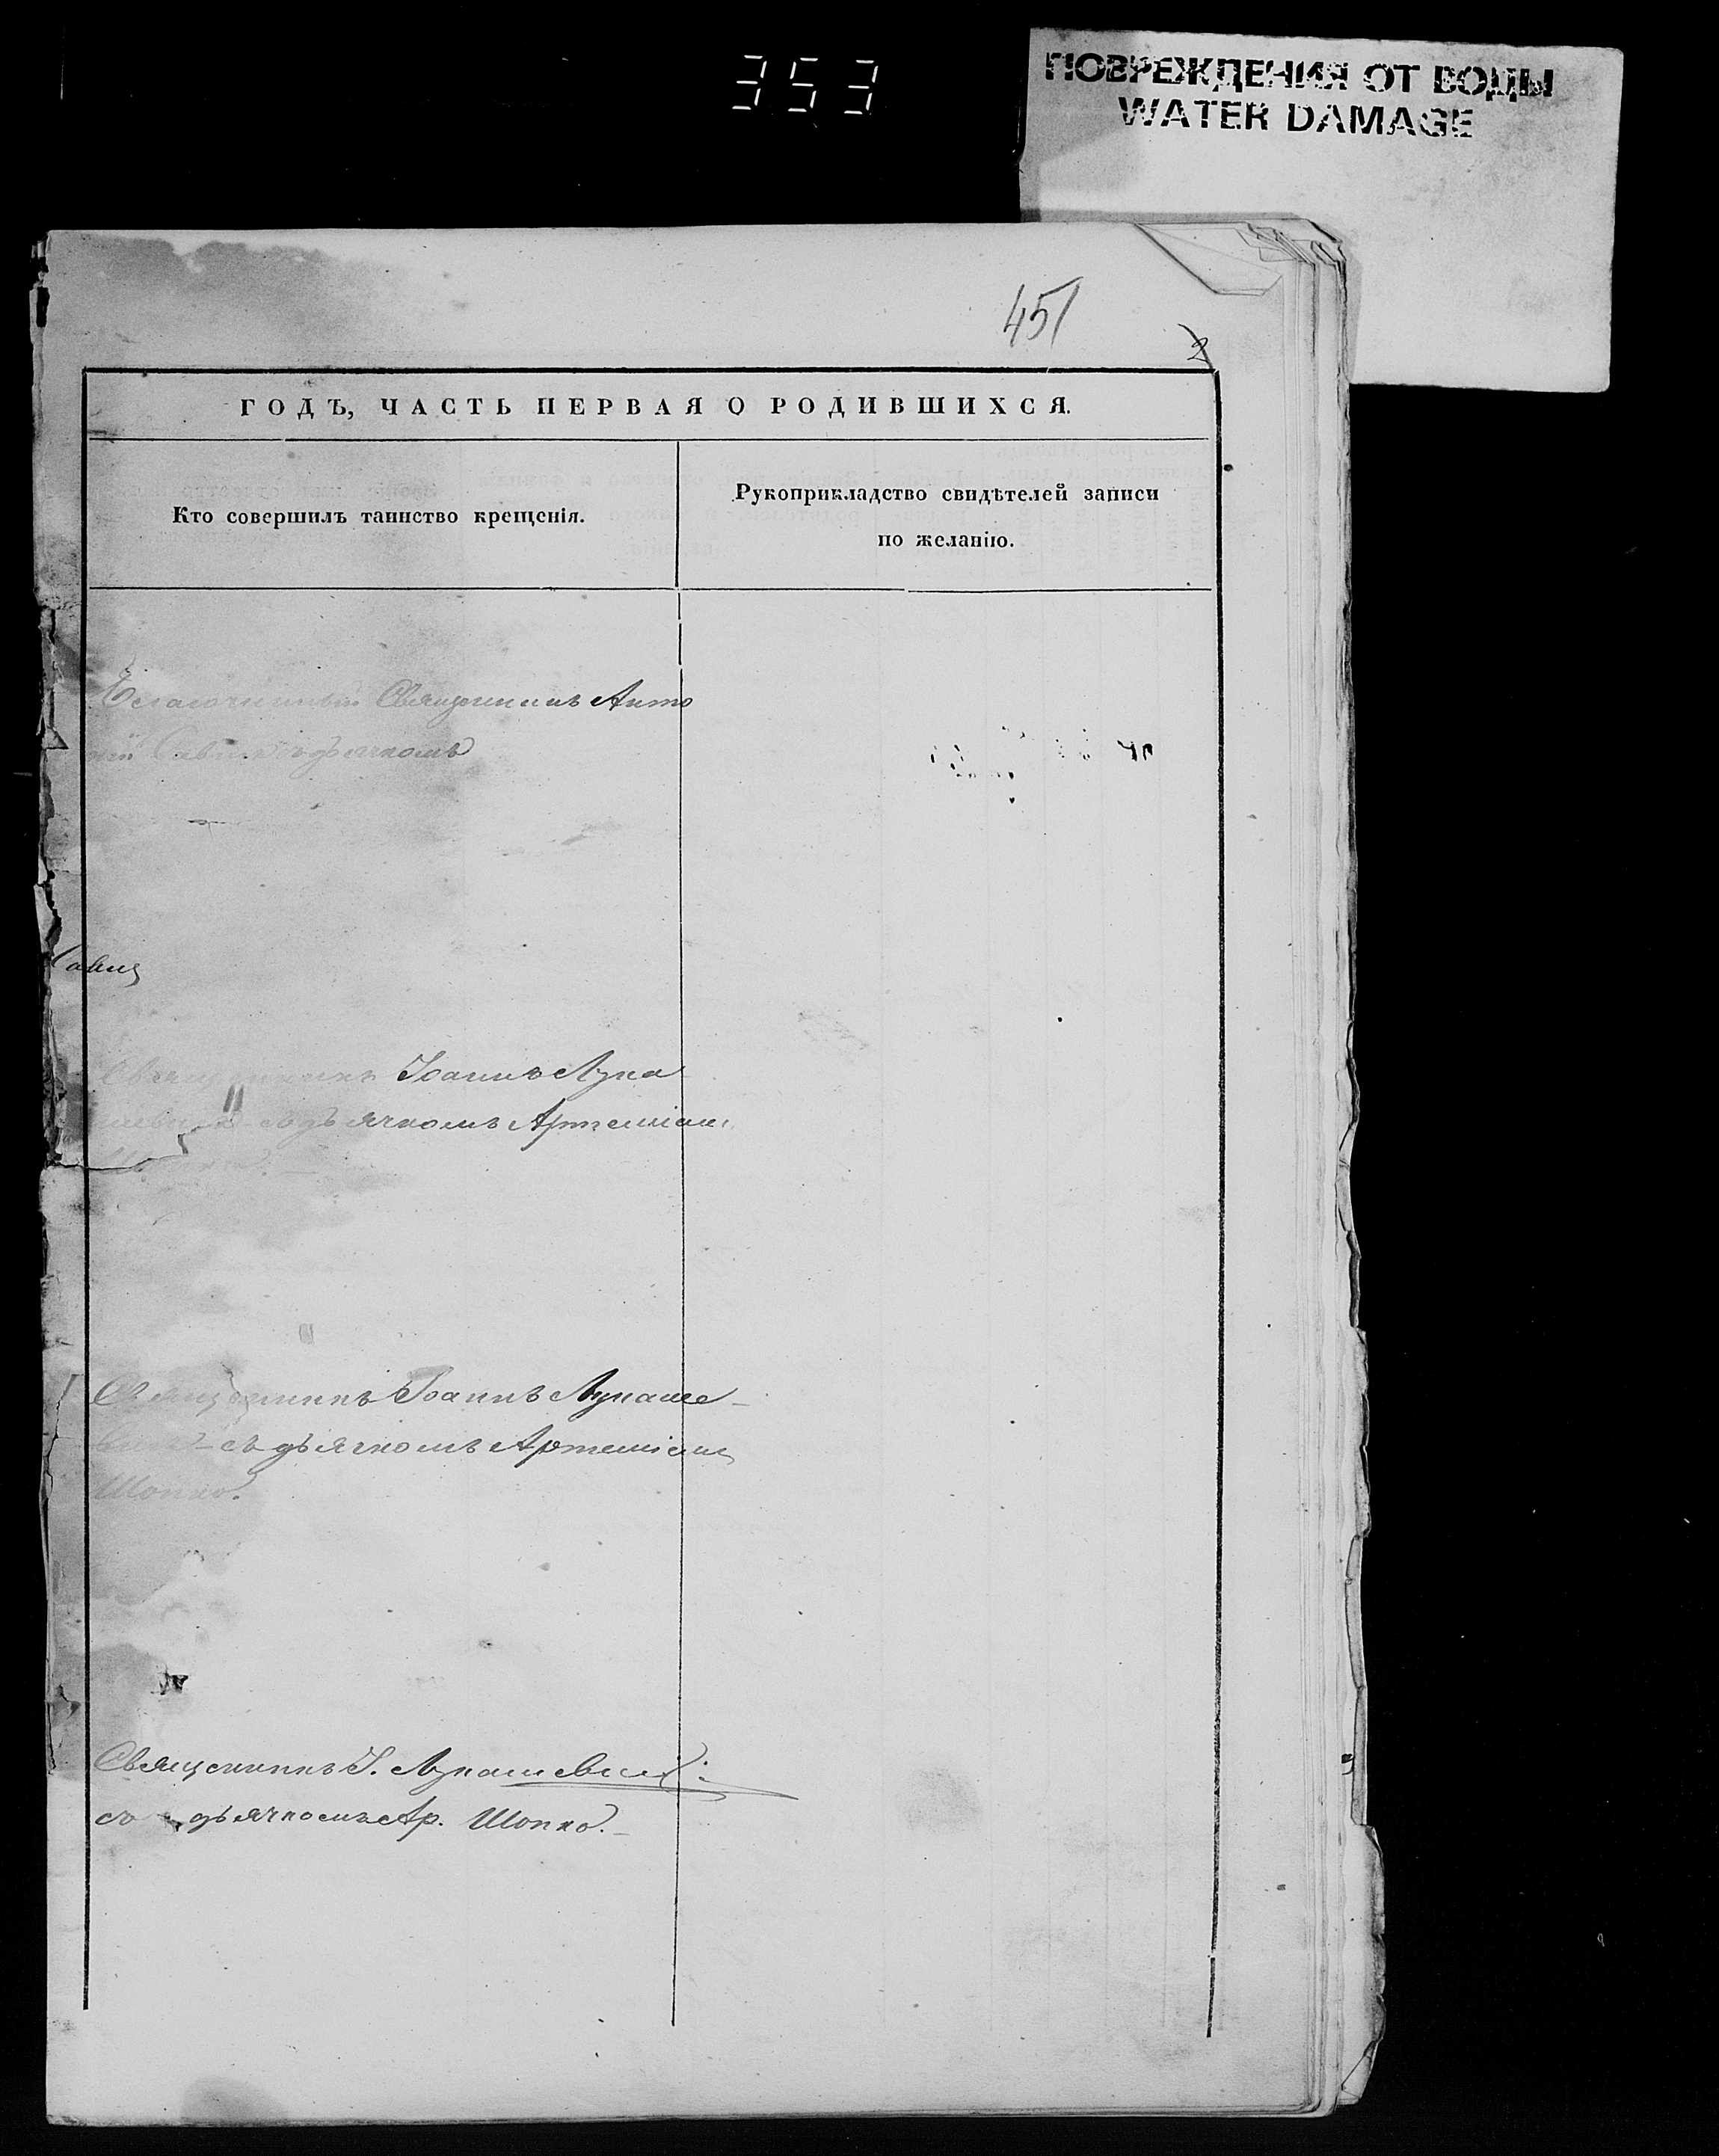 353
ПОВРЕЖДЕНИЯ ОТ ВОДЫ
WATER DAMAGE
451
2
ГОДЪ, ЧАСТЬ ПЕРВАЯ О РОДИВШИХСЯ.
Кто совершилъ таинство крещенія.
Рукоприкладство свидѣтелей записи
по желанію.
Благочинный Священникъ Анто
ній дьячкомъ
Священникъ Іоаннъ Лука
съ дьячкомъ Артеміемъ
Священникъ Іоаннъ Лукаше-
вичъ съ дьячкомъ Артеміемъ
Шопко.
Священникъ І. Лукашевичъ
съ дьячкомъ Ар. Шопко.